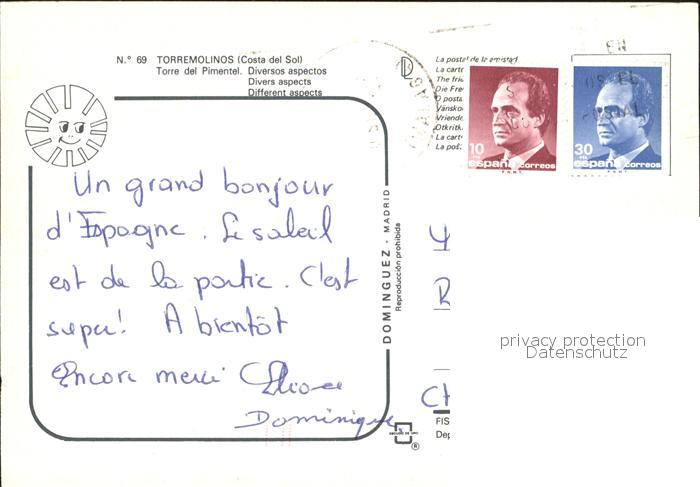 N.° 69 TORREMOLINOS (Costa del Sol)
Torre del Pimentel. Diversos aspectos
Divers aspects
Different aspects
La postal de la amistad
La carte
The frie
Die Fre
O posta
Vänsko
Vriende
Otkritk
La cart
La poš
10
españa correos
F.N.M.T.
30
españa correos
F.N.M.T.
Un grand bonjour
d'Espagne. Le soleil
est de la partie. C'est
super! A bientôt
Encore merci
Dominique
DOMINGUEZ - MADRID
Reproducción prohibida
privacy protection
Datenschutz
CH
FIS
Dep
®